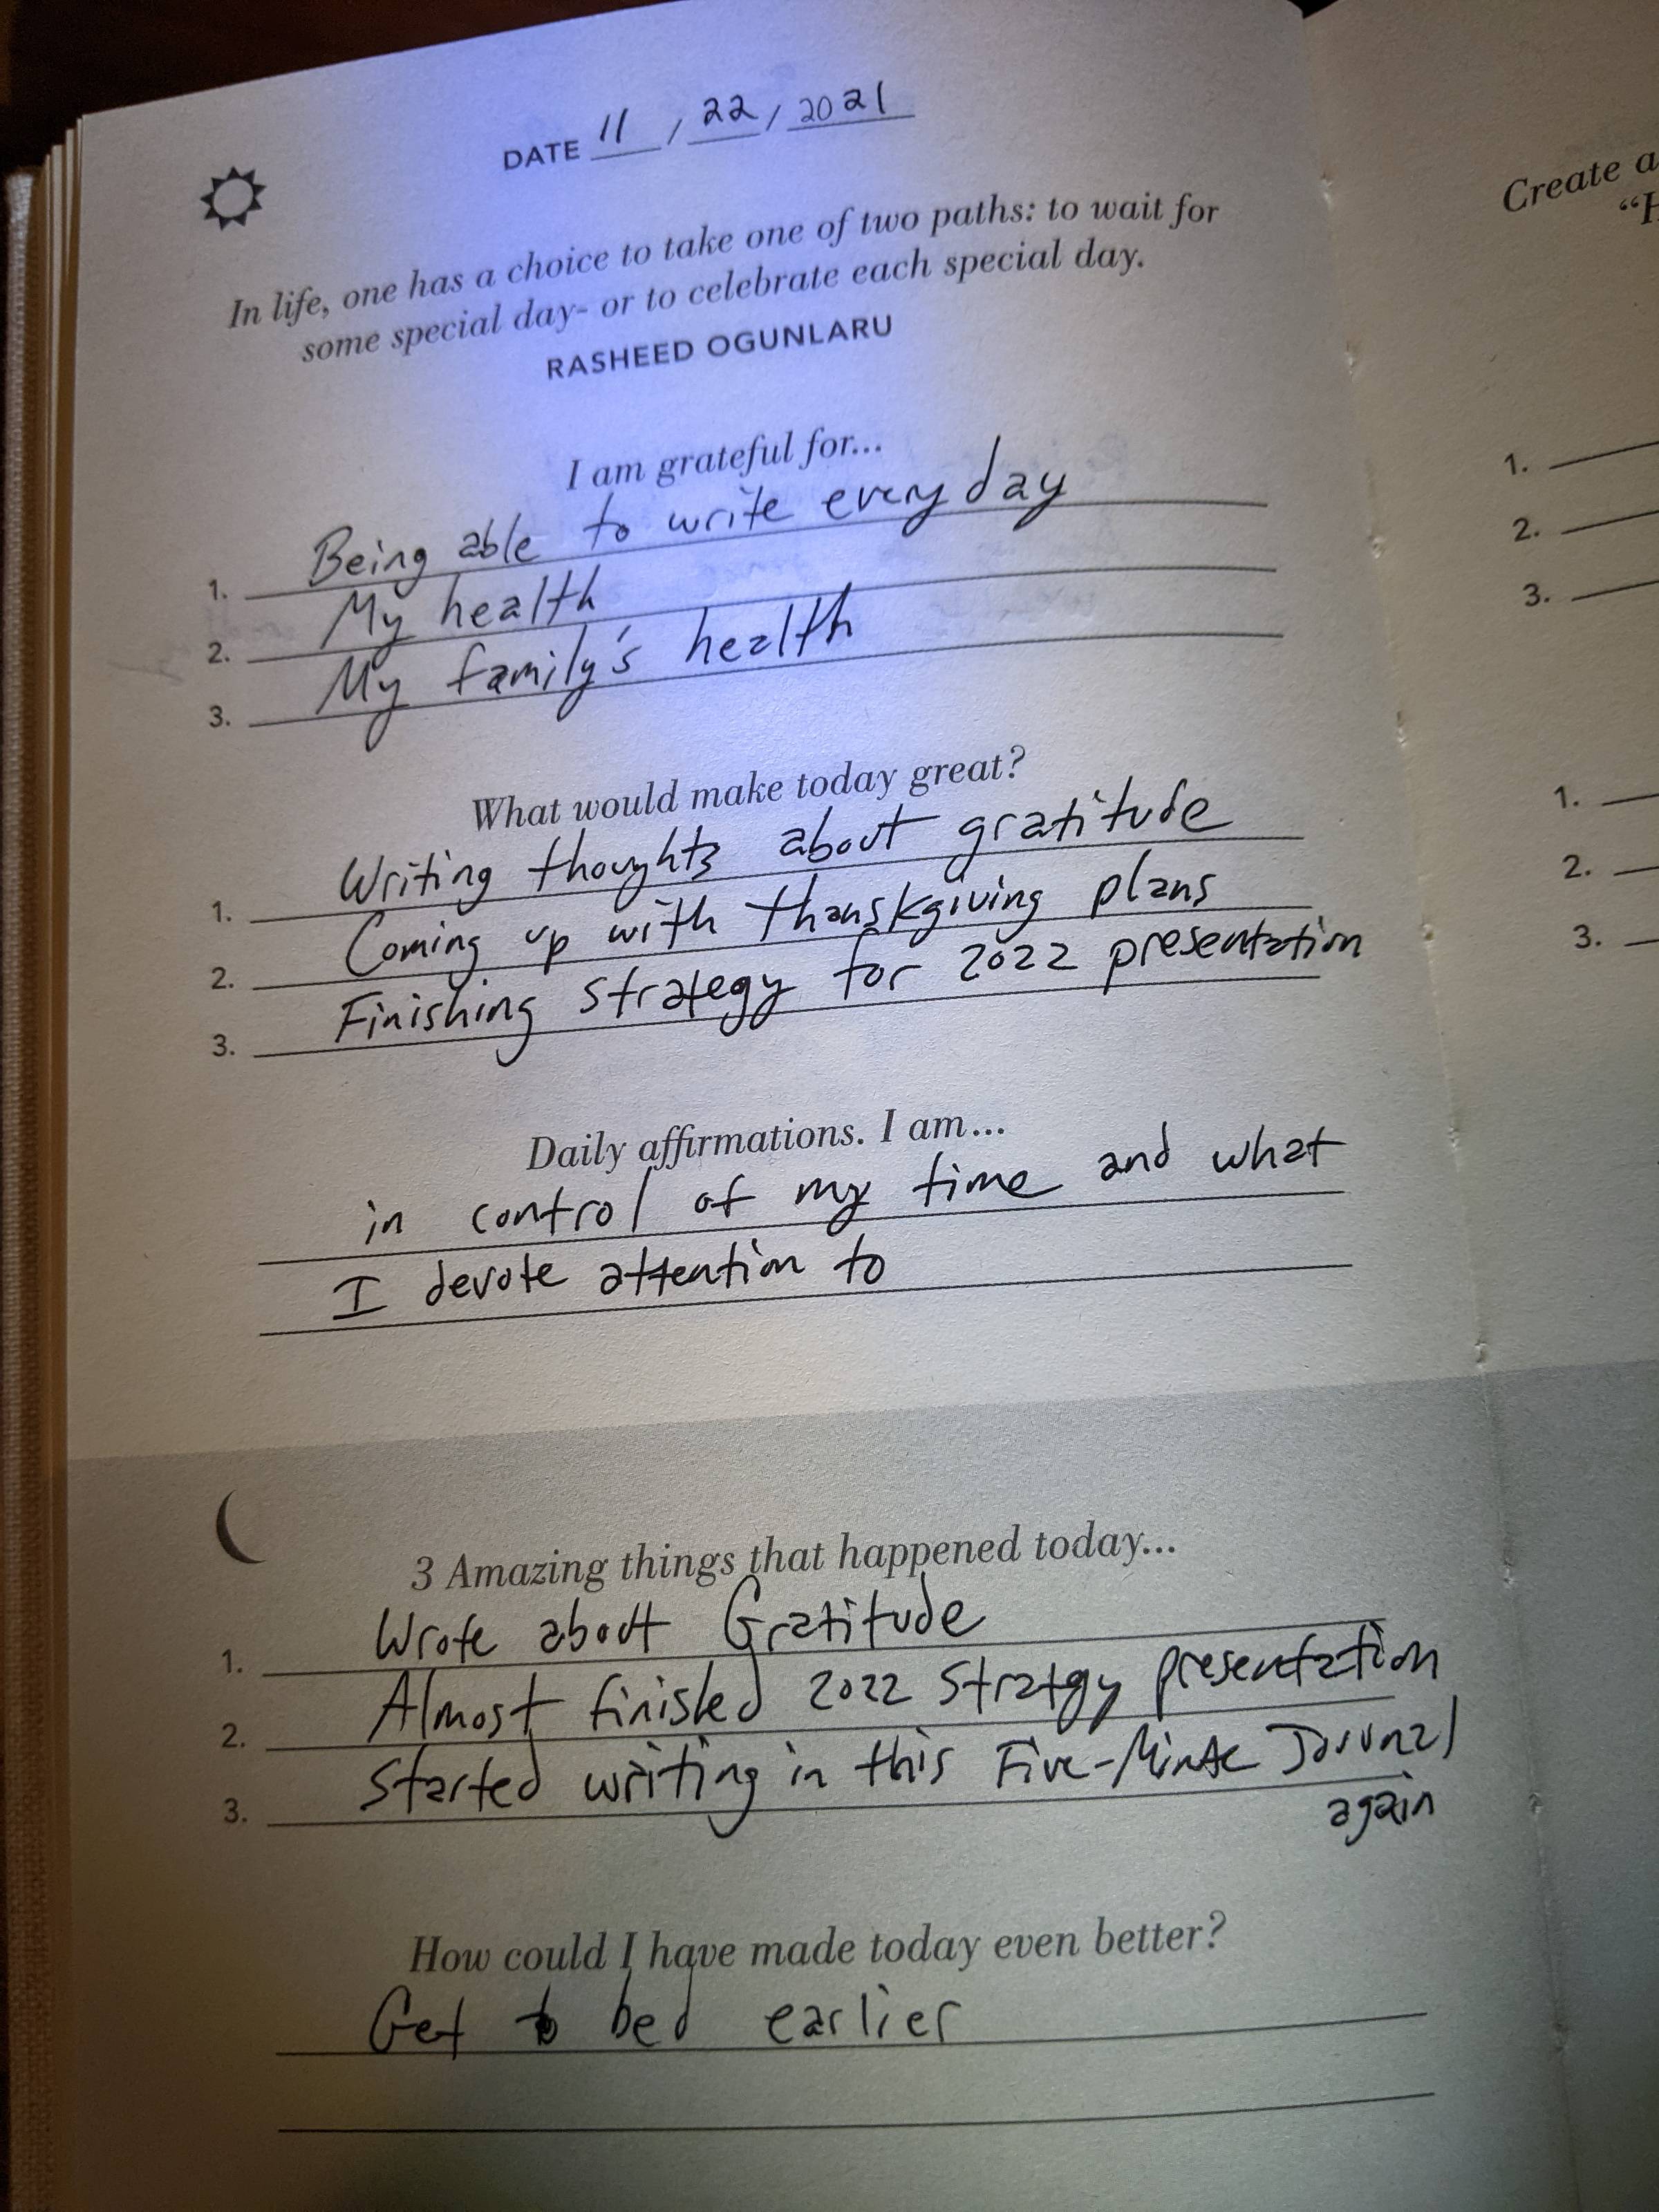 DATE 11 / 22 / 2021
In life, one has a choice to take one of two paths: to wait for
some special day- or to celebrate each special day.
RASHEED OGUNLARU
I am grateful for...
1. Being able to write every day
2. My health
3. My family's health
What would make today great?
1. Writing thoughts about gratitude
2. Coming up with thanskgiving plans
3. Finishing strategy for 2022 presentation
Daily affirmations. I am...
in control of my time and what
I devote attention to
3 Amazing things that happened today...
1. Wrote about Gratitude
2. Almost finished 2022 Stratgy presentation
3. Started writing in this Five-Minute Journal
again
How could I have made today even better?
Get to bed earlier
Create a
“H
1.
2.
3.
1.
2.
3.